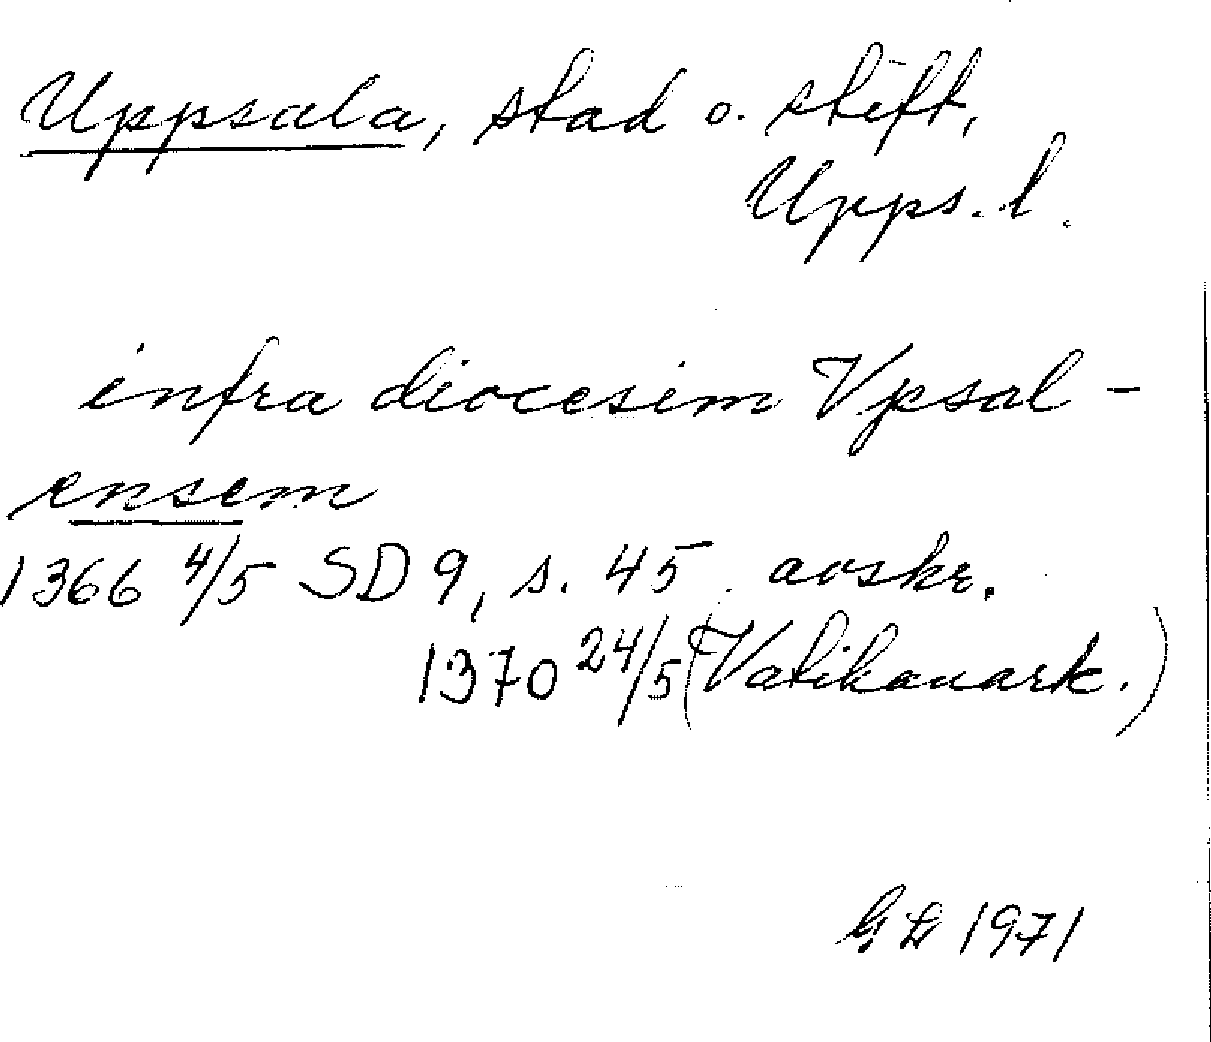 Uppsala, stad o. stift,
Upps. l.
infra diocesim Vpsal-
ensem
1366 4/5 SD 9, s. 45. avskr.
1370 24/5 (Vatikanark.)
1971